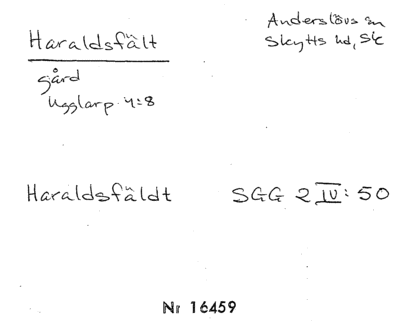 Haraldsfält
Anderslövs sn
Skytts hd, Sk
gård
Ugglarp 4:8
Haraldsfäldt
SGG 2 IV: 50
Nr 16459